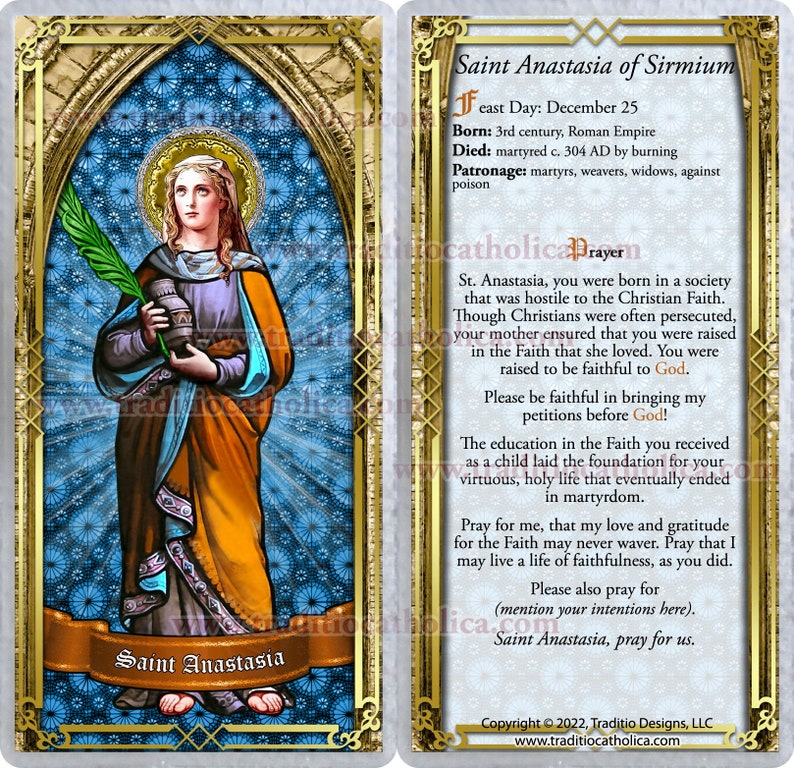 www.traditiocatholica.com
www.traditiocatholica.com
www.traditiocatholica.com
www.traditiocatholica.com
www.traditiocatholica.com
www.traditiocatholica.com
Saint Anastasia
Saint Anastasia of Sirmium
Feast Day: December 25
Born: 3rd century, Roman Empire
Died: martyred c. 304 AD by burning
Patronage: martyrs, weavers, widows, against
poison
Prayer
St. Anastasia, you were born in a society
that was hostile to the Christian Faith.
Though Christians were often persecuted,
your mother ensured that you were raised
in the Faith that she loved. You were
raised to be faithful to God.
Please be faithful in bringing my
petitions before God!
The education in the Faith you received
as a child laid the foundation for your
virtuous, holy life that eventually ended
in martyrdom.
Pray for me, that my love and gratitude
for the Faith may never waver. Pray that I
may live a life of faithfulness, as you did.
Please also pray for
(mention your intentions here).
Saint Anastasia, pray for us.
Copyright © 2022, Traditio Designs, LLC
www.traditiocatholica.com